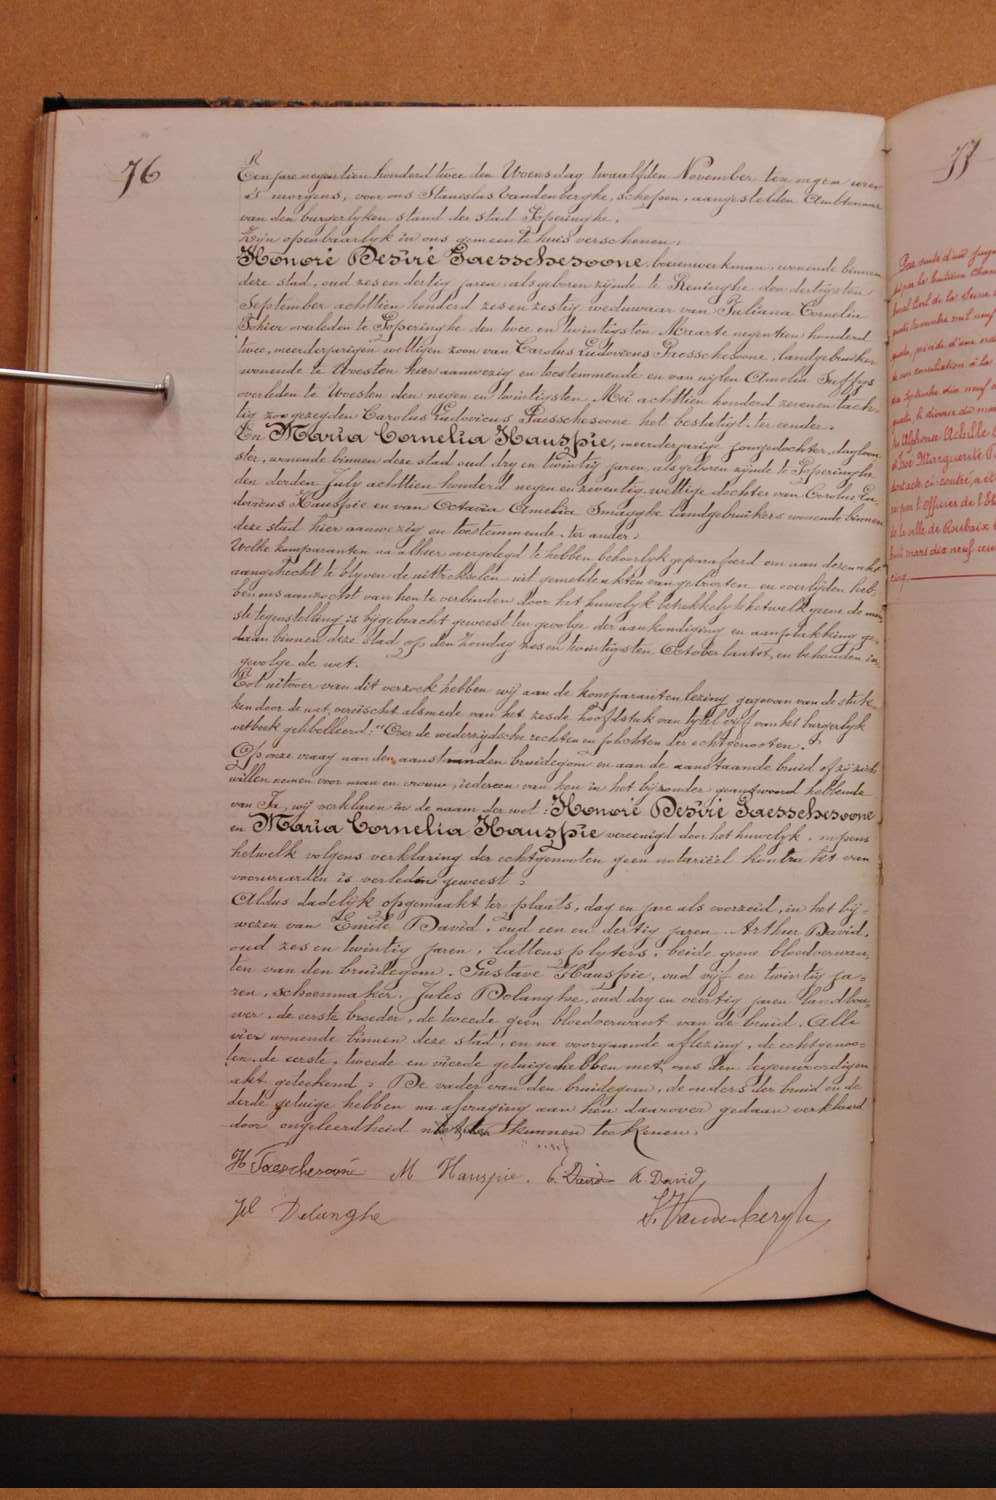 76
Ten jare negentien honderd twee den Woensdag twaalfden November ten negen uren
's morgens, voor ons Stanislas Vandenberghe, schepen, aangestelden Ambtenaar
van den burgerlyken stand der stad Poperinghe,
Zyn openbaarlyk in ons gemeentehuis verschenen,
Honoré Désiré Paesschesoone, boerenwerkman, wonende binnen
deze stad, oud zes en dertig jaren, als geboren zynde te Reninghe den dertigsten
September achttien honderd zes en zestig, weduwaar van Juliana Cornelia
Tohier overleden te Poperinghe den twee en twintigsten Maarte negentien honderd
twee, meerderjarigen wettigen zoon van Carolus Ludovicus Paesschesoone, landgebruiker
wonende te Woesten hier aanwezig en toestemmende en van wylen Amelia Suffys
overleden te Woesten den negen en twintigsten Mei achttien honderd zeven en tach-
tig zoo gezegden Carolus Ludovicus Paesschesoone het bestatigt, ter eender.
En Maria Cornelia Hauspie, meerderjarige jongedochter, dagloon-
ster, wonende binnen deze stad oud dry en twintig jaren, als geboren zynde te Poperinghe
den derden July achttien honderd negen en zeventig, wettige dochter van Carolus Lu-
dovicus Hauspie en van Octavia Amelia Smagghe landgebruikers wonende binnen
deze stad hier aanwezig en toestemmende, ter ander.
Welke komparanten na alhier overgelegd te hebben behoorlyk geparafeerd om aan dezen akt
aangehecht te blyven de uittreksels uit gemelde akten van geboorten en overlyden heb-
ben ons aanzocht van hen te verbinden door het huwelyk betrekkelyk hetwelk geene de min-
ste tegenstelling is bygebracht geweest ten gevolge der aankondiging en aanplakking ge-
daan binnen deze stad op den Zondag zes en twintigsten October laatst, en behouden in-
gevolge de wet.
Tot uitvoer van dit verzoek hebben wy aan de komparanten lezing gegeven van de stuk-
ken door de wet vereischt alsmede van het zesde hoofdstuk van tytel vyf van het burgerlyk
wetboek gelibelleerd: "Over de wederzydsche rechten en plichten der echtgenooten."
Op onze vraag aan den aanstaanden bruidegom en aan de aanstaande bruid of zy zich
willen nemen voor man en vrouw, iedereen van hen in het byzonder geantwoord hebbende
van Ja, wy verklaren in de naam der wet: Honoré Désiré Paesschesoone
en Maria Cornelia Hauspie vereenigd door het huwelyk, nopens
hetwelk volgens verklaring der echtgenooten geen notariëel kontrakt van
voorwaarden is verleden geweest.
Aldus dadelyk opgemaakt ter plaats, dag en jare als voorzeid, in het by-
wezen van Emile David, oud een en dertig jaren, Arthur David,
oud zes en twintig jaren, lattensplyters, beide geene bloedverwan-
ten van den bruidegom, Gustave Hauspie, oud vyf en twintig ja-
ren, schoenmaker, Jules Delanghe, oud dry en veertig jaren landbou-
wer, de eerste broeder, de tweede geen bloedverwant van de bruid. Alle
vier wonende binnen deze stad, en na voorgaande aflezing, de echtgenoo-
ten, de eerste, tweede en vierde getuigen hebben met ons den tegenwoordigen
akt geteekend. De vader van den bruidegom, de ouders der bruid en de
derde getuige hebben na afvraging aan hen daarover gedaan verklaard
door ongeleerdheid niet te kunnen teekenen.
H Paesschesoone M Hauspie. E. David A. David
Jul Delanghe S. Vandenberghe
77
Par suite d'un juge